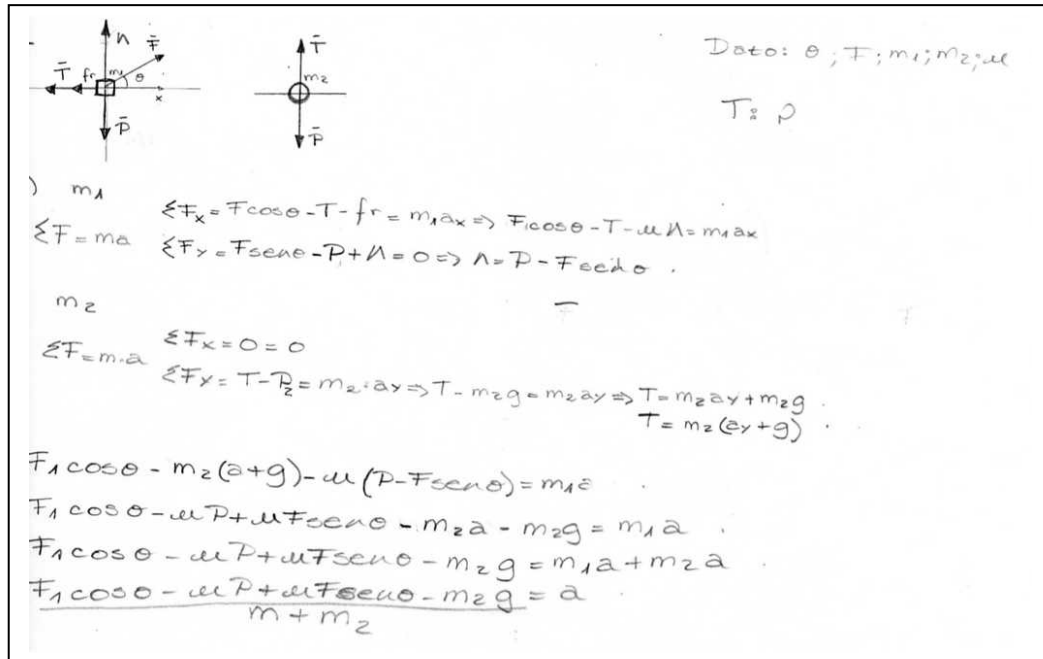 n F̄
T̄ fr m1 θ
x
P̄
T̄
m2
P̄
Dato: θ; F; m1; m2; μ
T: P
) m1
ΣF=ma
ΣFx = Fcosθ - T - fr = m1ax => F1cosθ - T - μN = m1ax
ΣFy = Fsenθ - P + N = 0 => N = P - Fsenθ .
m2
ΣF=m.a
ΣFx = 0 = 0
ΣFy = T - P2 = m2.ay => T - m2g = m2ay => T = m2ay + m2g .
T = m2(ay+g) .
F1cosθ - m2(a+g) - μ(P-Fsenθ) = m1a .
F1cosθ - μP + μFsenθ - m2a - m2g = m1a .
F1cosθ - μP + μFsenθ - m2g = m1a + m2a .
F1cosθ - μP + μFsenθ - m2g = a
m + m2